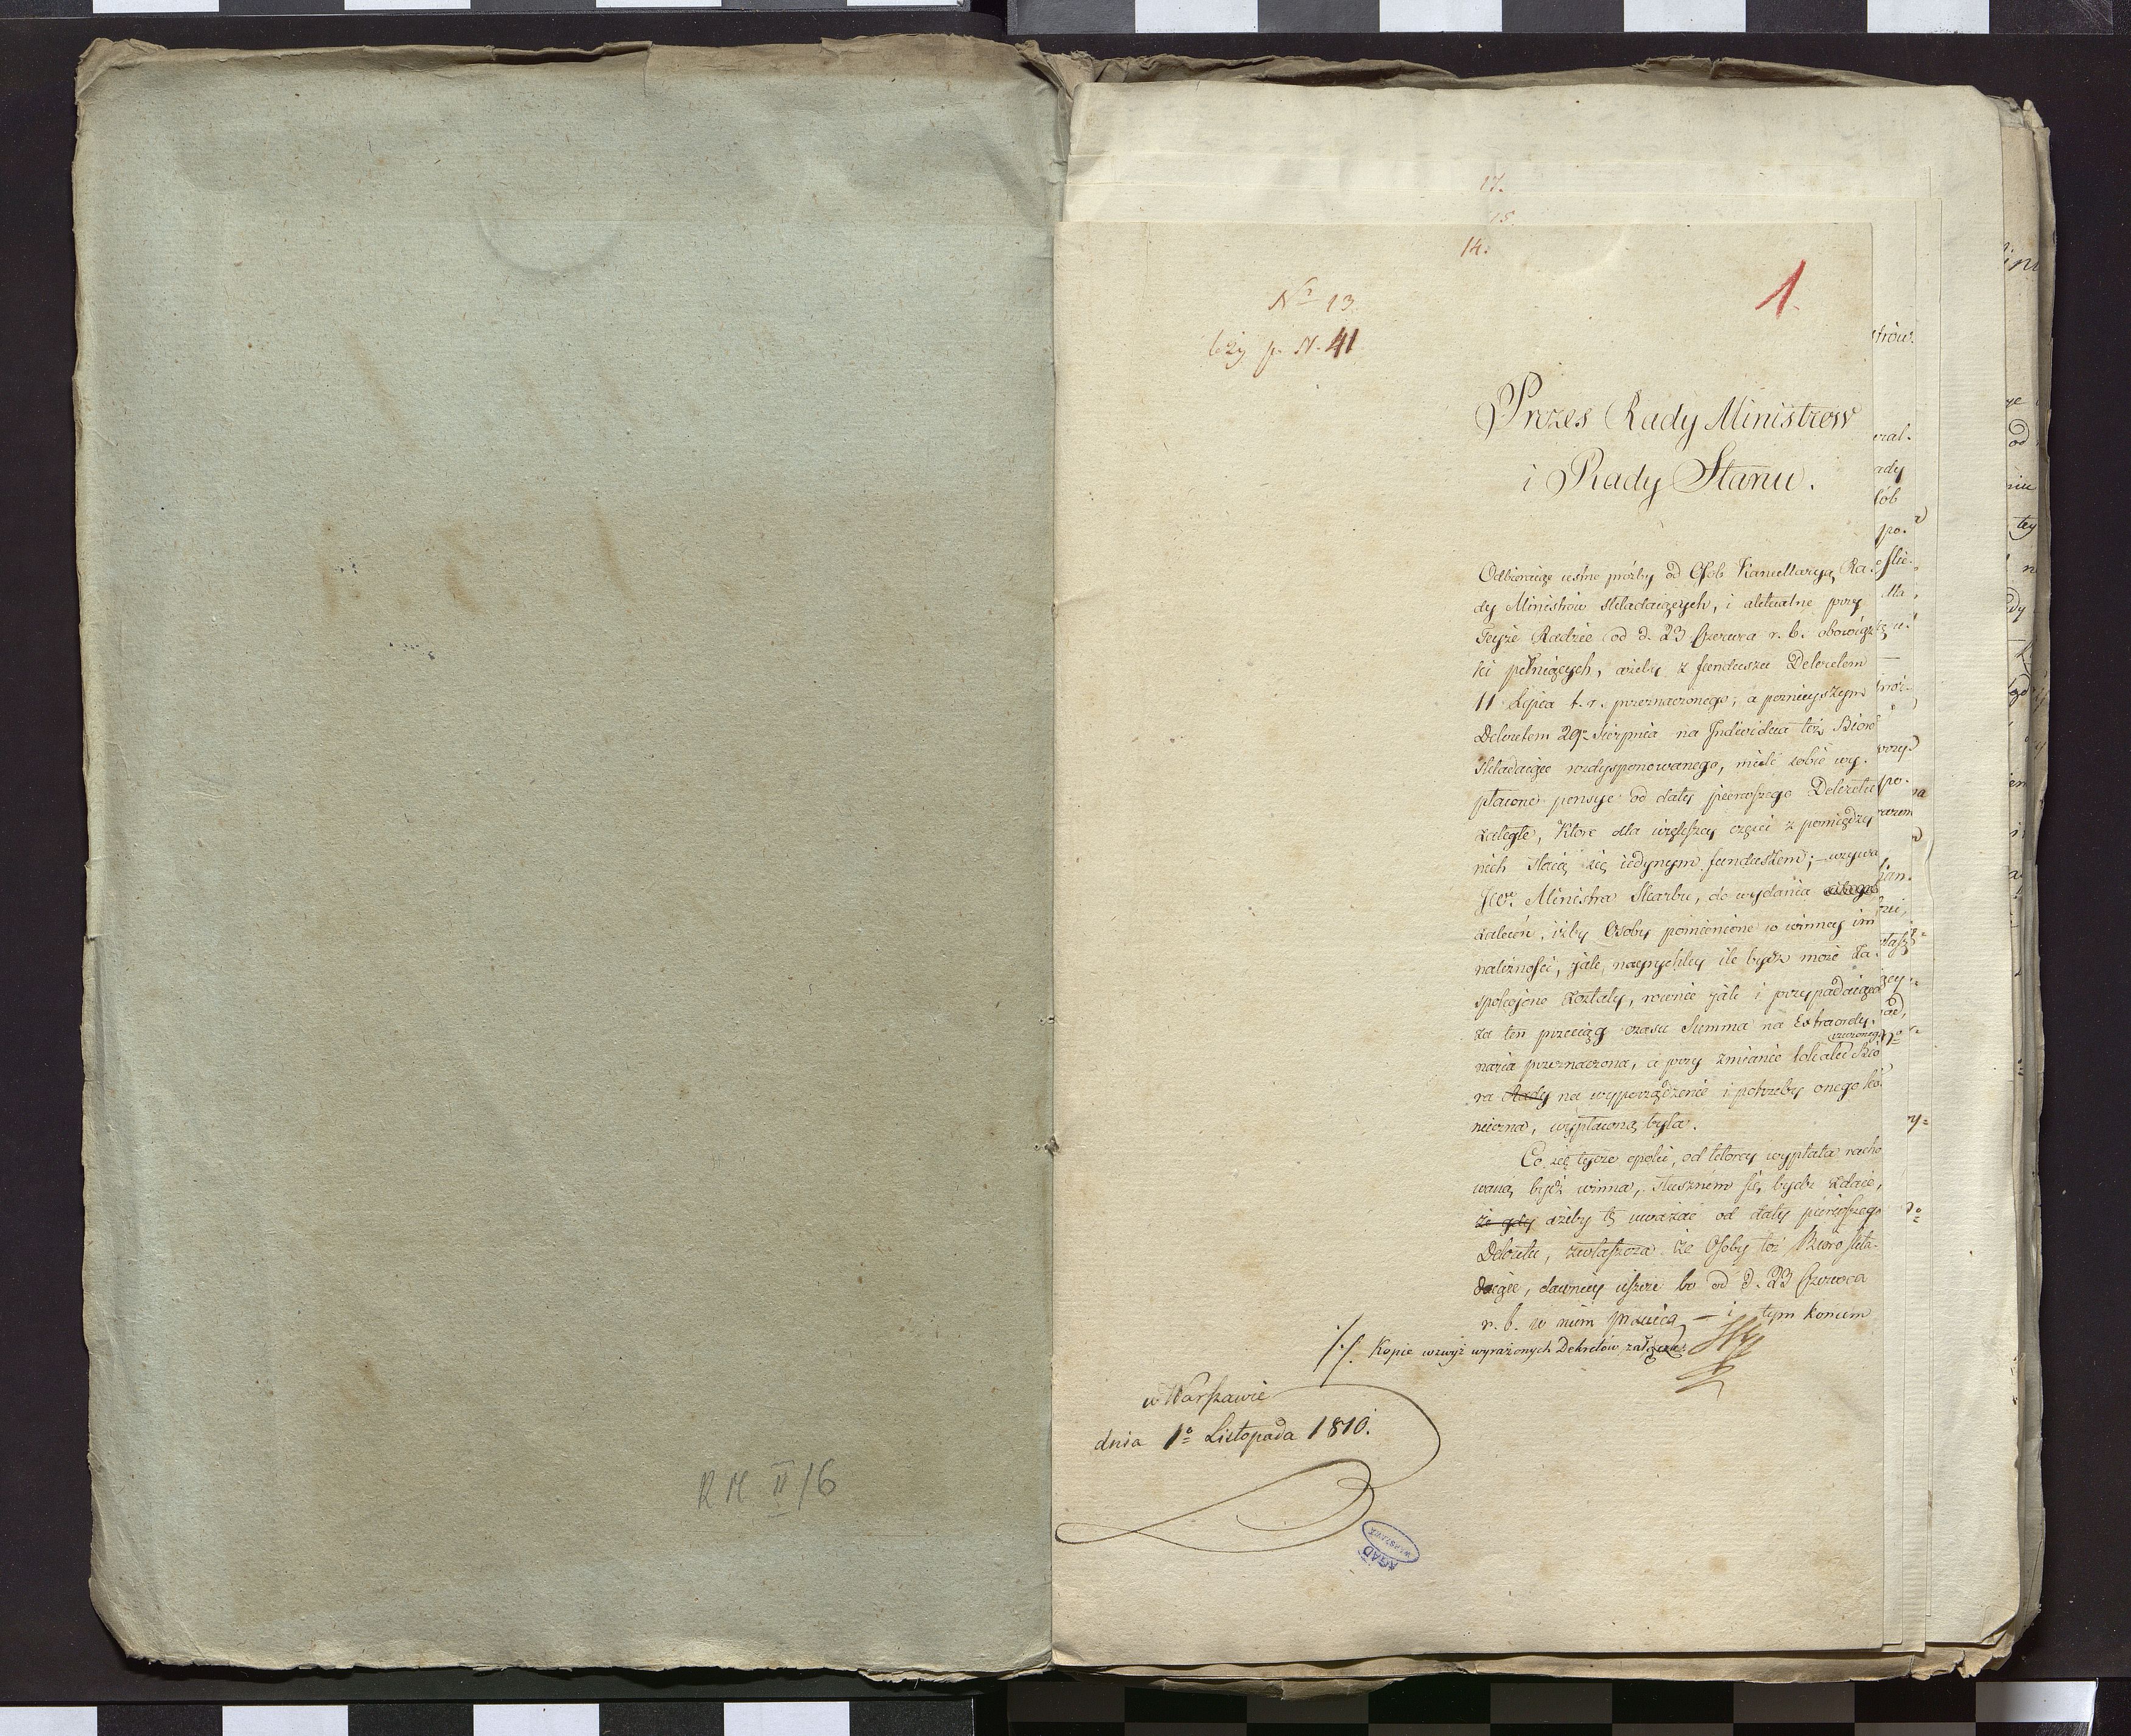 17.
15
14.
1.
No 13
leży p. N. 41
Prezes Rady Ministrow
i Rady Stanu.
Odbieraiąc ustne prózby od Osób Kancellaryą Ra-
dy Ministrów składaiących, i aktualne przy
Teyże Radzie od d. 23 Czerwca r. b. obowiąz
ki pełniących, ażeby z funduszu Dekretem
11 Lipca t. r. przeznaczonego, a poznieyszym
Dekretem 29o Sierpnia na Indiwidua toż Bióro
składaiące rozdysponowanego, mieli sobie wy-
płacone pensye od daty pierwszego Dekretu
zaległe, które dla większey części z pomiędzy
nich staią się iedynym funduszem; – wzywa
JW. Ministra Skarbu, do wydania
zaleceń, iżby Osoby pomienione w winney im
należności, jak nayrychley ile bydź może za-
spokojone zostały, rownie jak i przypadaiąca
za ten przeciąg czasu Summa na Extraordy-
naria przeznaczona, a przy zmianie lokalu Bió
rzeczonego
ra Rady na wyporządzenie i potrzeby onego ko-
nieczna, wypłaconą była.
Co się tycze epoki, od ktorey wypłata racho
waną bydź winna, słusznem się bydź zdaie,
że gdy ażeby tę uważać od daty pierwszego
Dekretu, zwłaszcza że Osoby toż Bióro skła-
daiące, dawniey ieszcze bo od d. 23 Czerwca
r. b. w niem pracuią – i tym koncem
·/·/. Kopie wzwyż wyrażonych Dekretów załącza.
w Warszawie
dnia 1o Listopada 1810.
AGAD
WARSZAWA
RM II/6